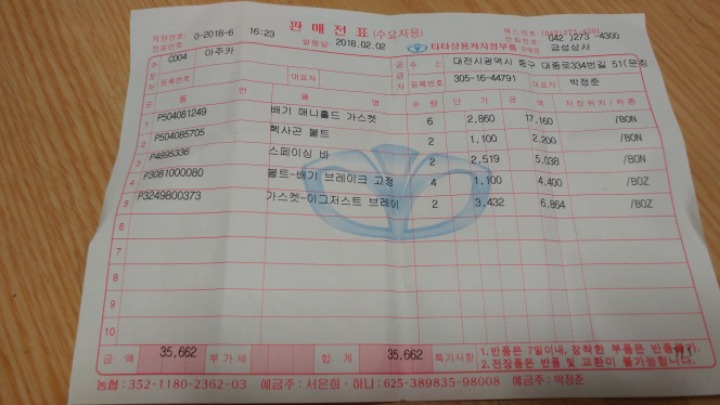 판매전표 (수요자용)
차량번호: 0-2018-6 16:23
전표번호:
발행일 2018.02.02
타타상용차지정부품
팩스번호: (042)273-4301
전화번호: 042 )273 -4300
판매점 금성상사
0004 아주카
공급자 주 소 대전시광역시 중구 대종로334번길 51(문창
등록번호 대표자 등록번호 305-16-44791 대표자 박정준
품 번 품 명 수 량 단 가 금 액 저장위치/차종
1 P504081249 배기 매니홀드 가스켓 6 2,860 17,160 /BON
2 P504085705 헥사곤 볼트 2 1,100 2,200 /BON
3 P4895336 스페이싱 바 2 2,519 5,038 /BON
4 P3081000080 볼트-배기 브레이크 고정 4 1,100 4,400 /BOZ
5 P3249800373 가스켓-이그저스트 브레이 2 3,432 6,864 /BOZ
6
7
8
9
10
금 액 35,662 부가세 합 계 35,662 특기사항 1.반품은 7일이내, 장착한 부품은 반품불가.
2.전장품은 반품 및 교환이 불가능합니다.
농협:352-1180-2362-03 예금주:서은희 · 하나:625-389835-98008 예금주:박정준